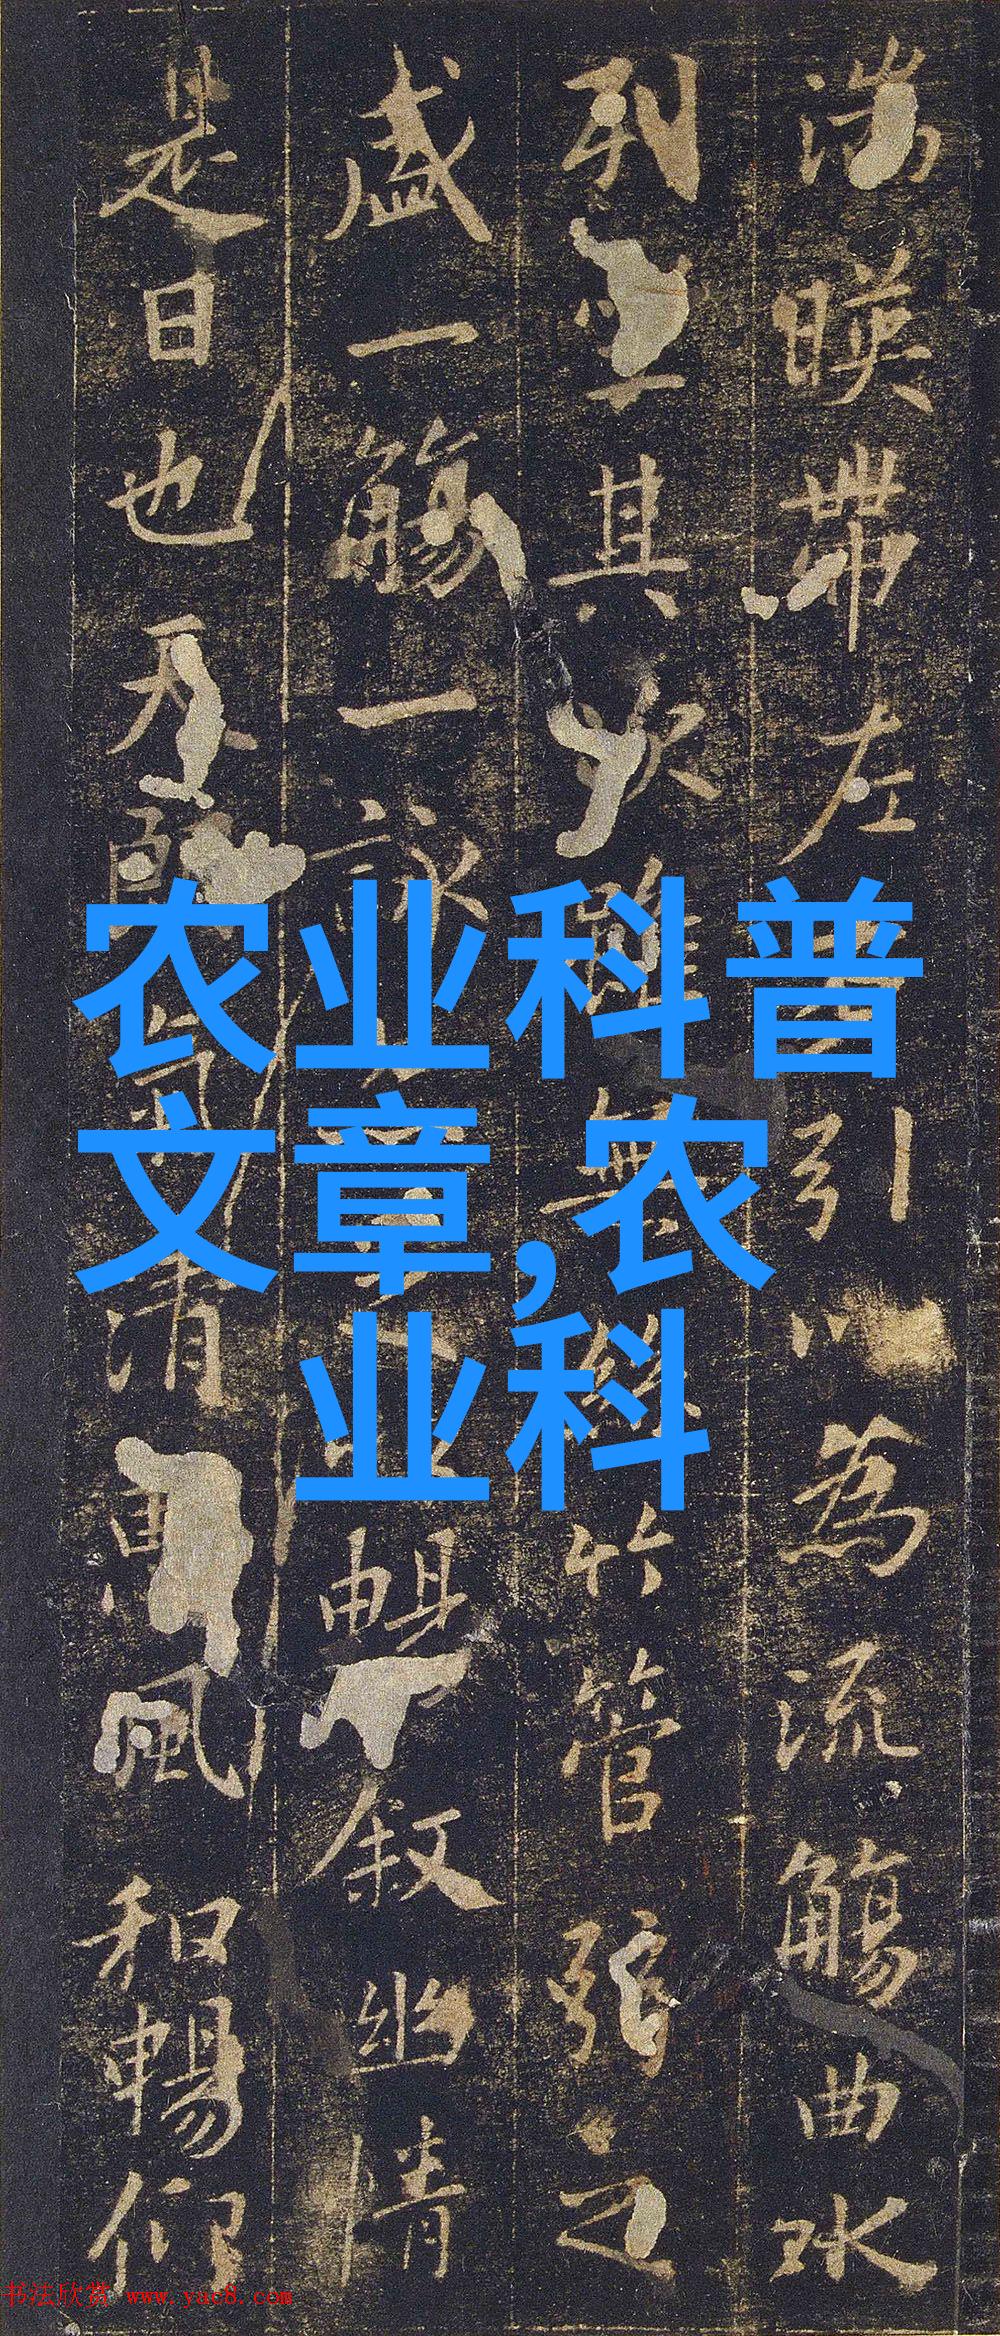 湍暎帶左引以為流觴曲水
列坐其次雖無絲竹管弦之
盛一觴一詠暢敘幽情
是日也天朗氣清惠風和暢仰
农业科普
文章,农
业科
书法欣赏 www.yac8.com